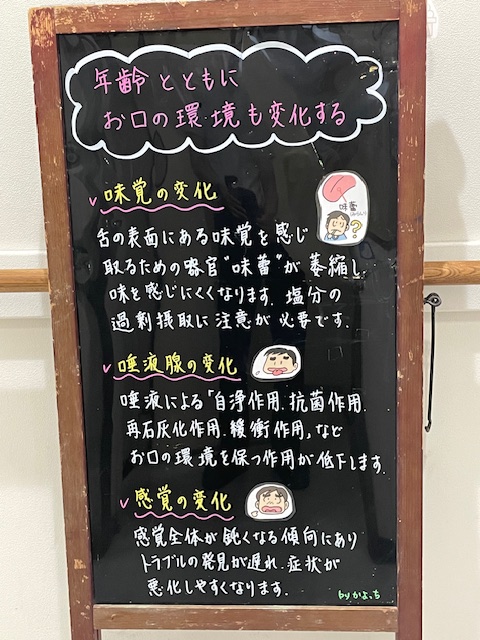 年齢とともに
お口の環境も変化する
味覚の変化
味蕾
?
舌の表面にある味覚を感じ
取るための器官"味蕾"が萎縮し
味を感じにくくなります。塩分の
過剰摂取に注意が必要です。
唾液腺の変化
唾液による「自浄作用.抗菌作用.
再石灰化作用.緩衝作用」など
お口の環境を保つ作用が低下します。
感覚の変化
感覚全体が鈍くなる傾向にあり
トラブルの発見が遅れ.症状が
悪化しやすくなります。
byかよっち